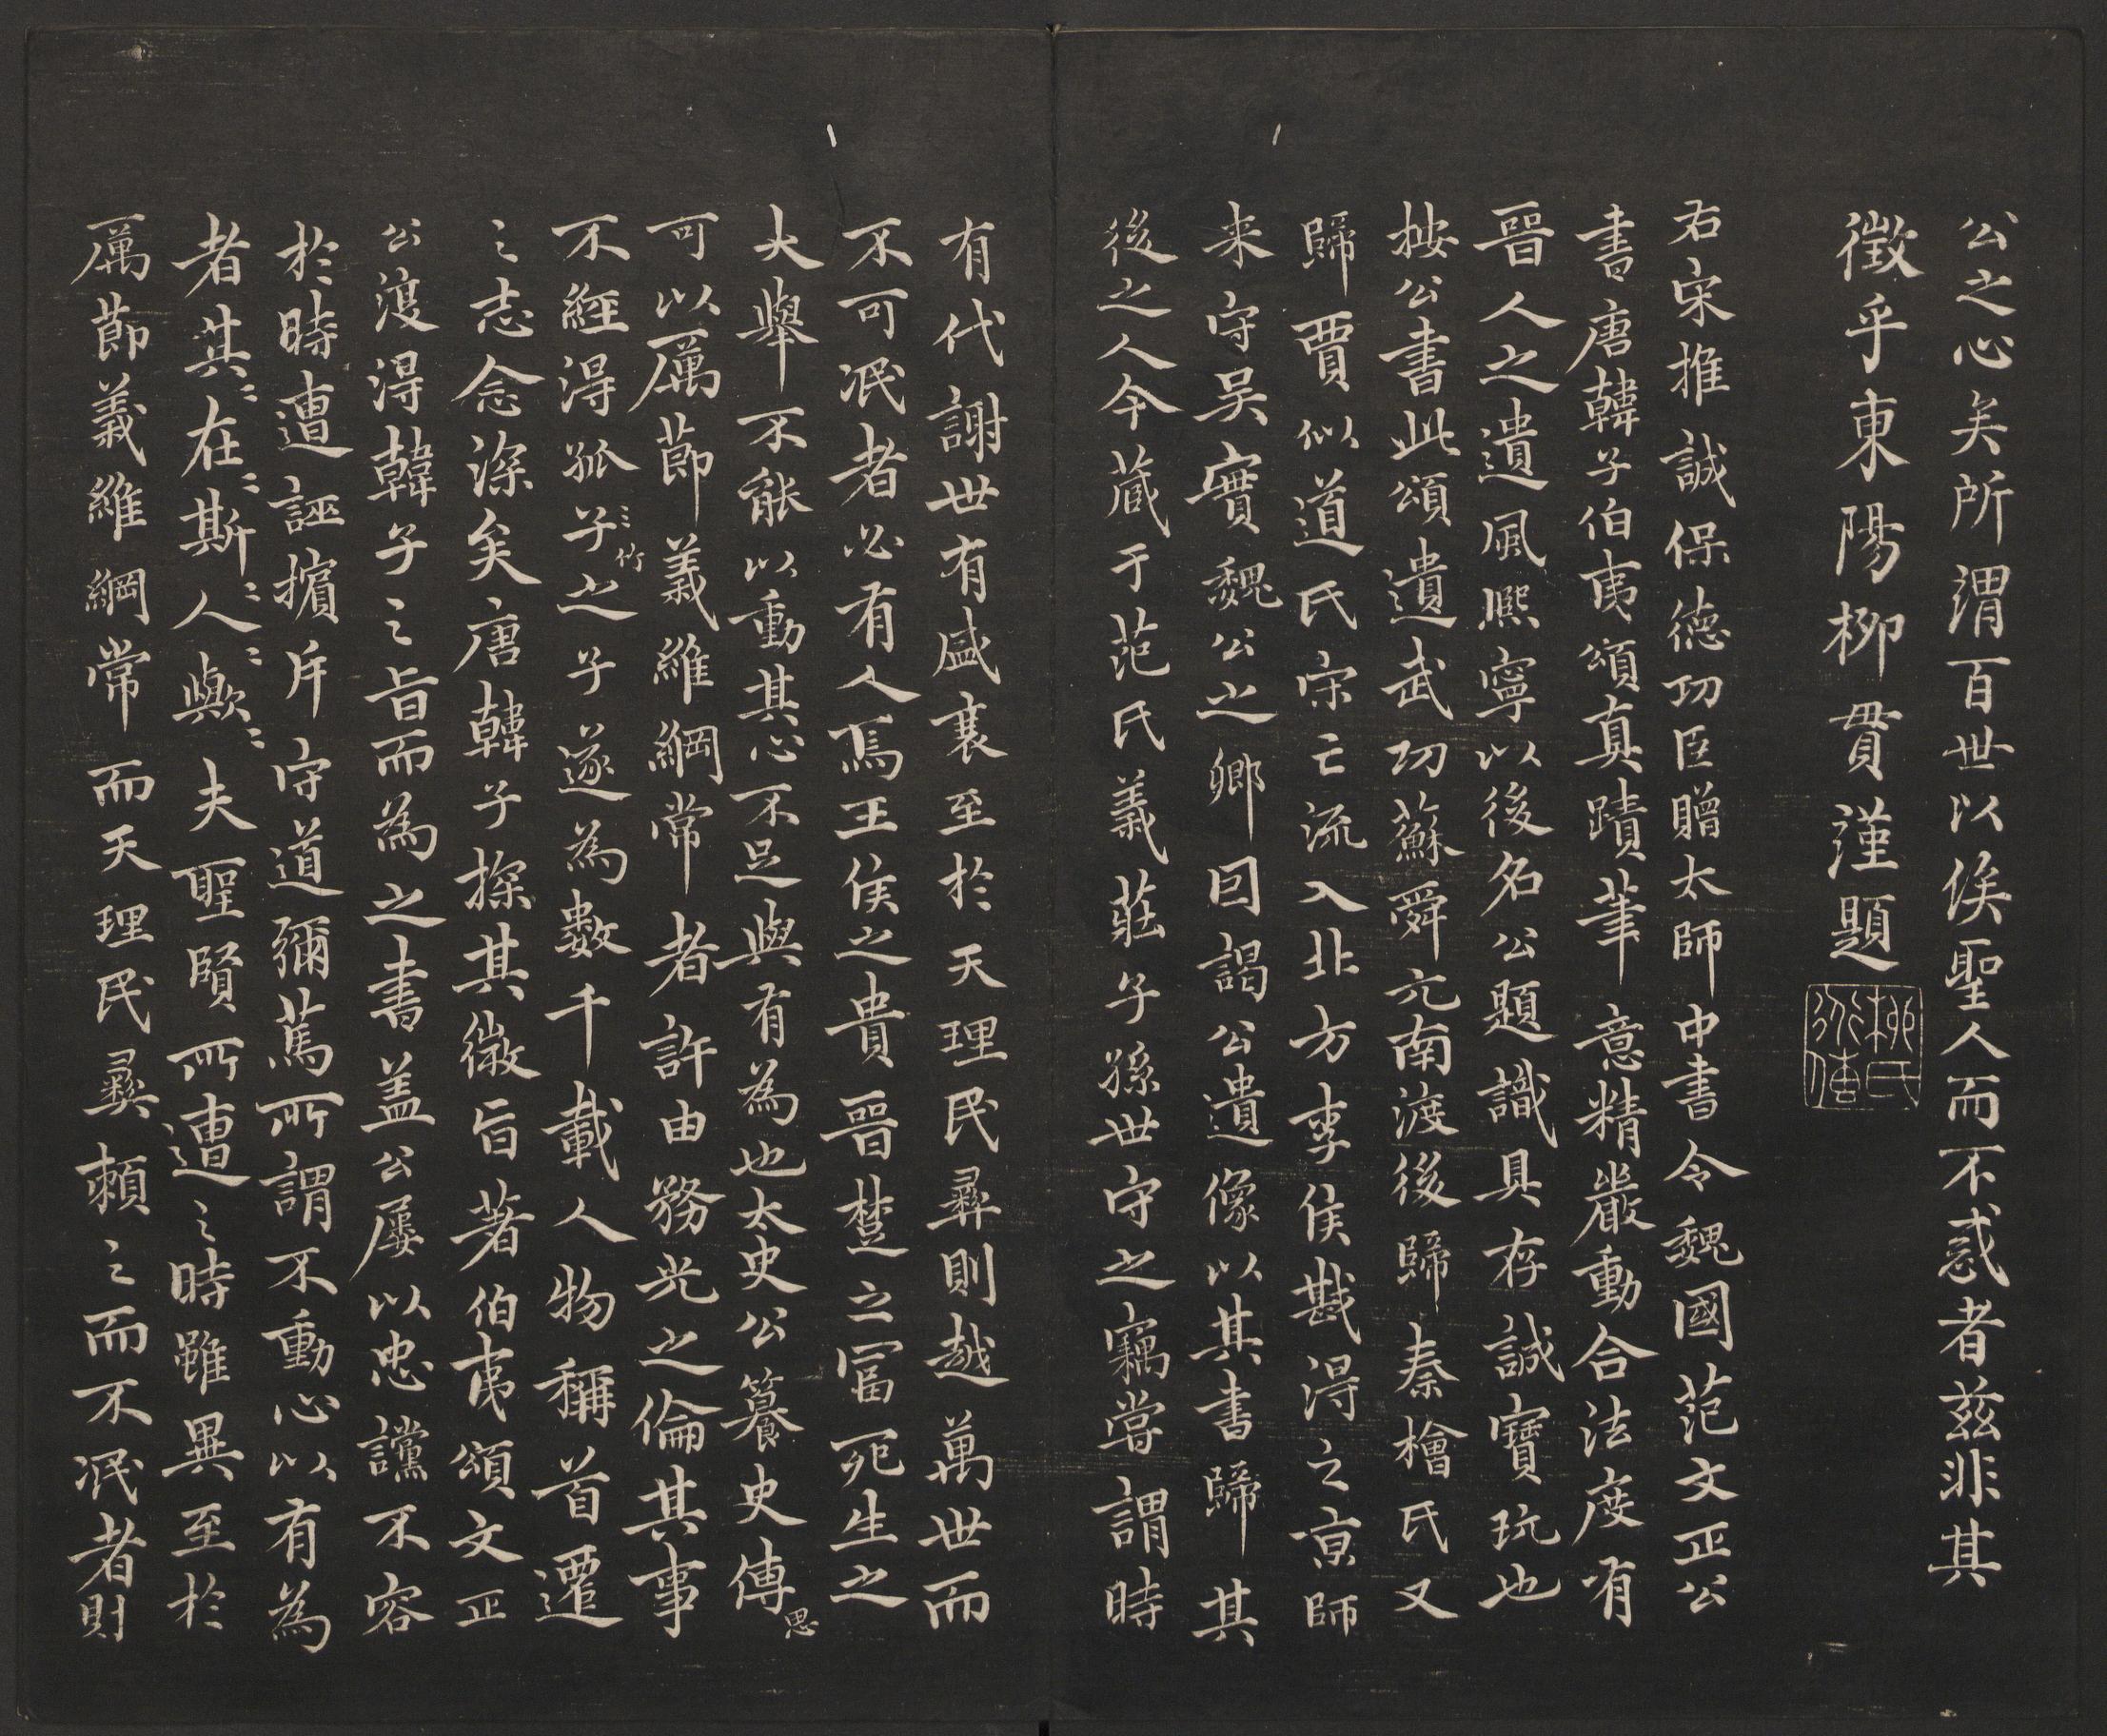 公之心矣所謂百世以俟聖人而不惑者茲非其
徵乎東陽柳貫謹題
柳氏
右宋推誠保德功臣贈太師中書令魏國范文正公
書唐韓子伯夷頌真蹟筆意精嚴動合法度有
晉人之遺風熙寧以後名公題識具存誠寶玩也
按公書此頌遺武功蘇舜元南渡後歸秦檜氏又
歸賈似道氏宋亡流入北方李侯戡得之京師
来守吴實魏公之鄉因謁公遺像以其書歸其
後之人今藏于范氏義莊子孫世守之竊嘗謂時
有代謝世有盛衰至於天理民彝則越萬世而
不可泯者必有人焉王侯之貴晉楚之富死生之
大舉不能以動其心不足與有為也太史公簒史傳思
可以厲莭義維綱常者許由務光之倫其事
不經得孤子竹之子遂為數千載人物稱首遷
之志念深矣唐韓子探其微旨著伯夷頌文正
公復得韓子之旨而為之書盖公屢以忠讜不容
於時遭誣擯斥守道彌篤所謂不動心以有為
者其在斯人歟夫聖賢所遭之時雖異至於
厲莭義維綱常而天理民彝頼之而不泯者則